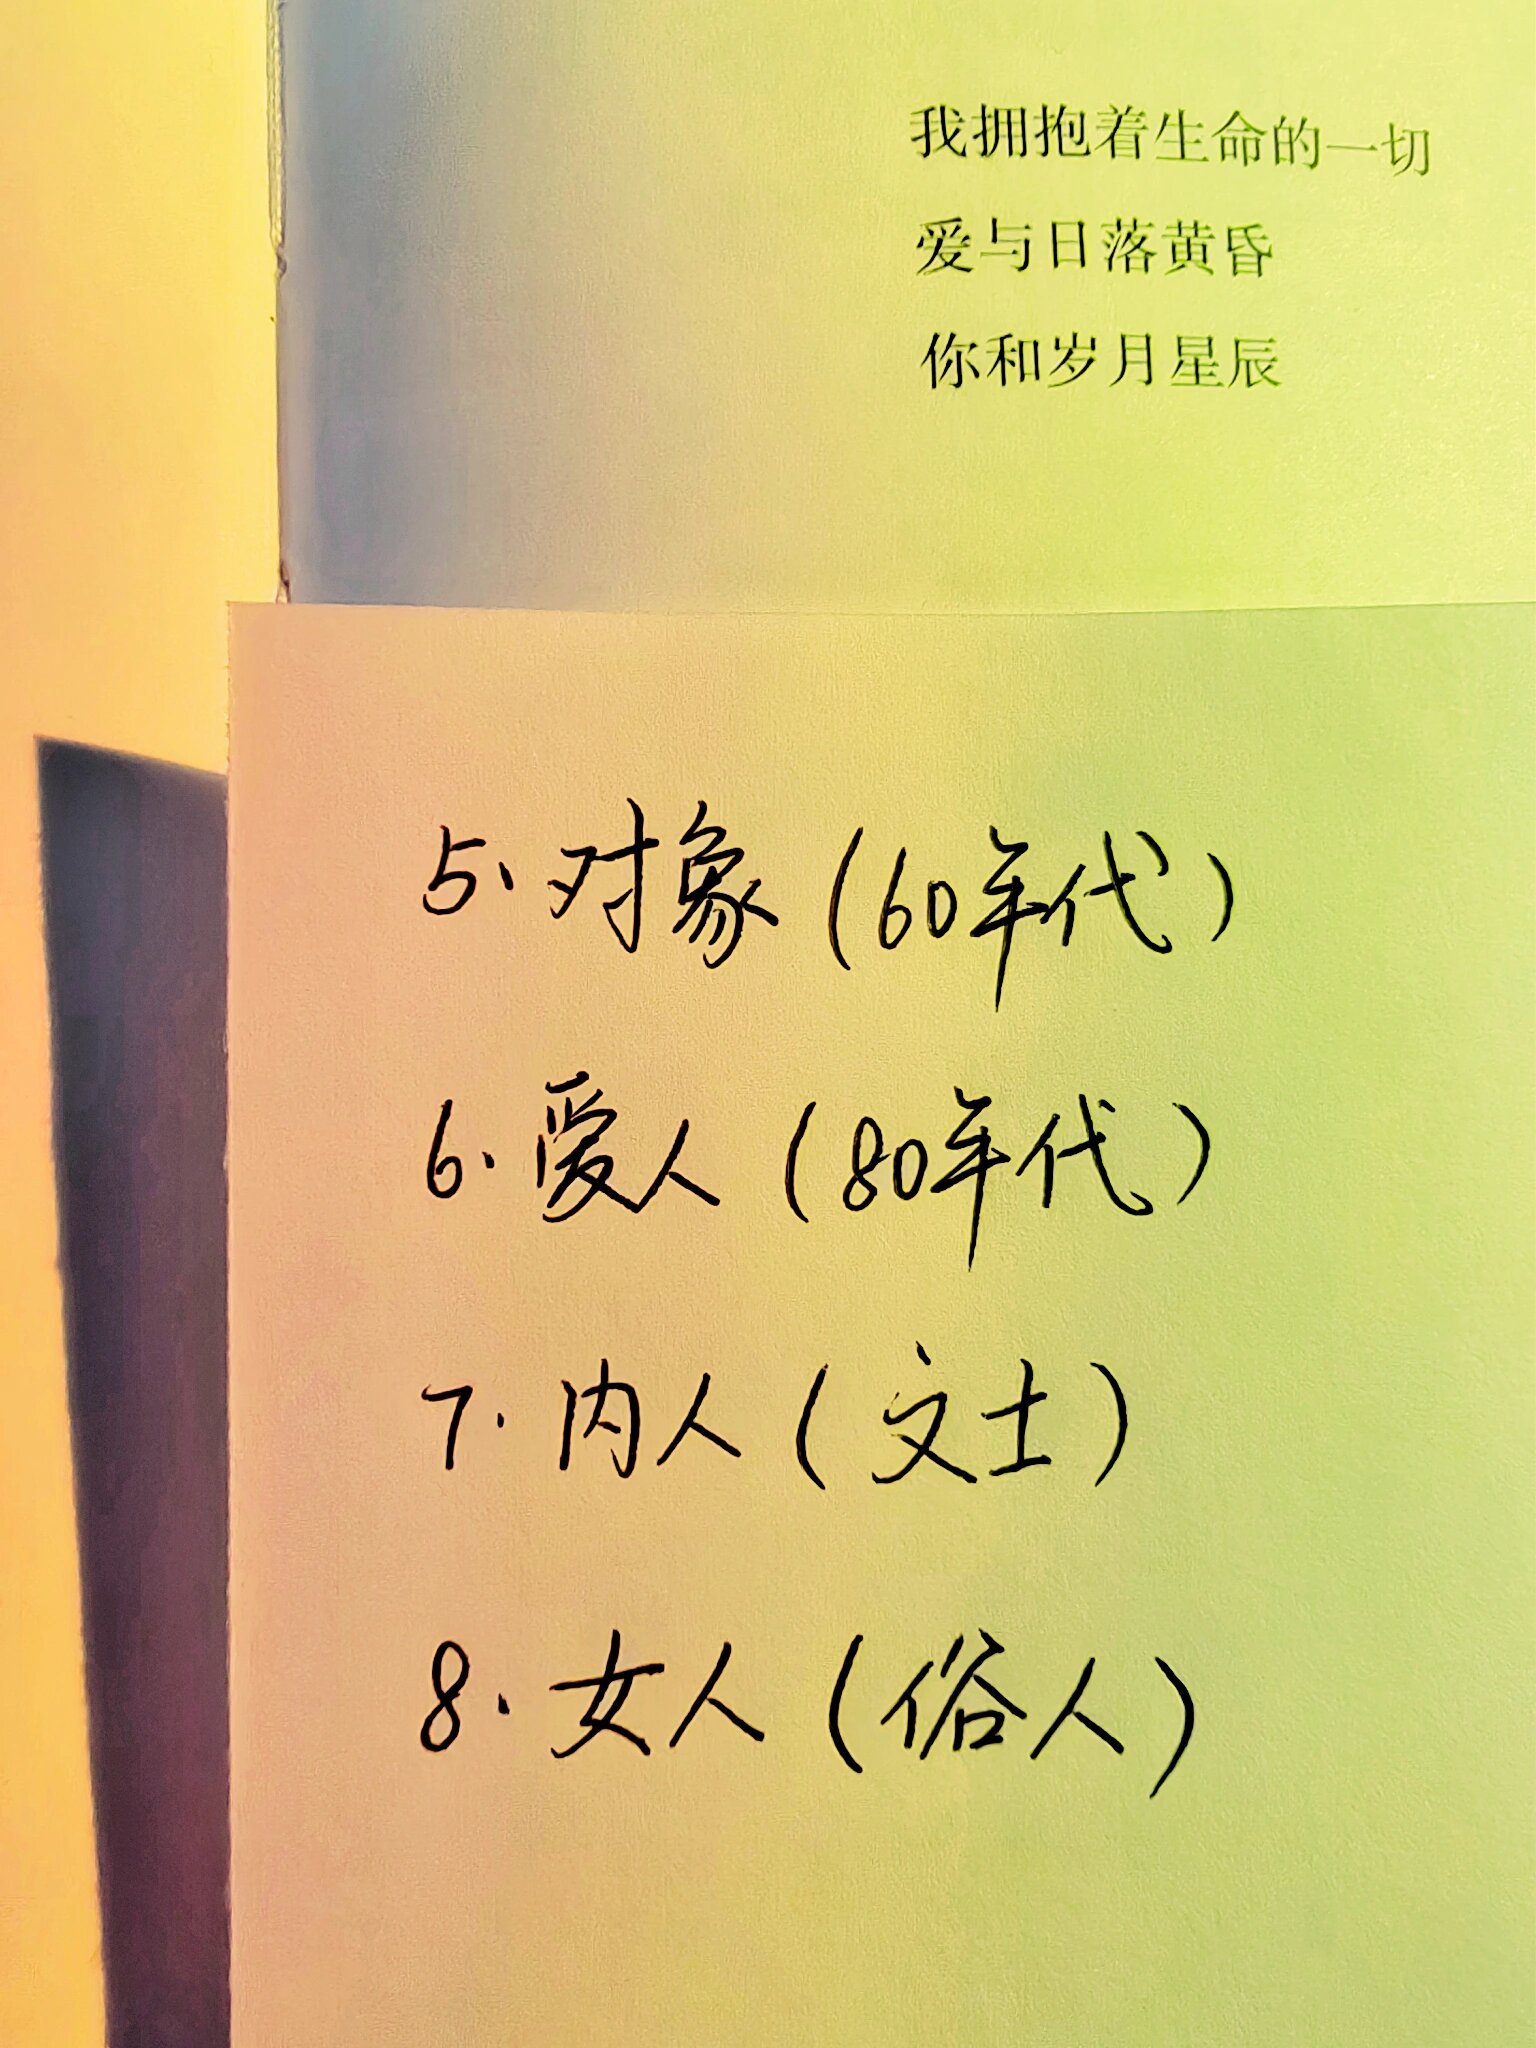 我拥抱着生命的一切
爱与日落黄昏
你和岁月星辰
5.对象(60年代)
6.爱人(80年代)
7.内人(文士)
8.女人(俗人)